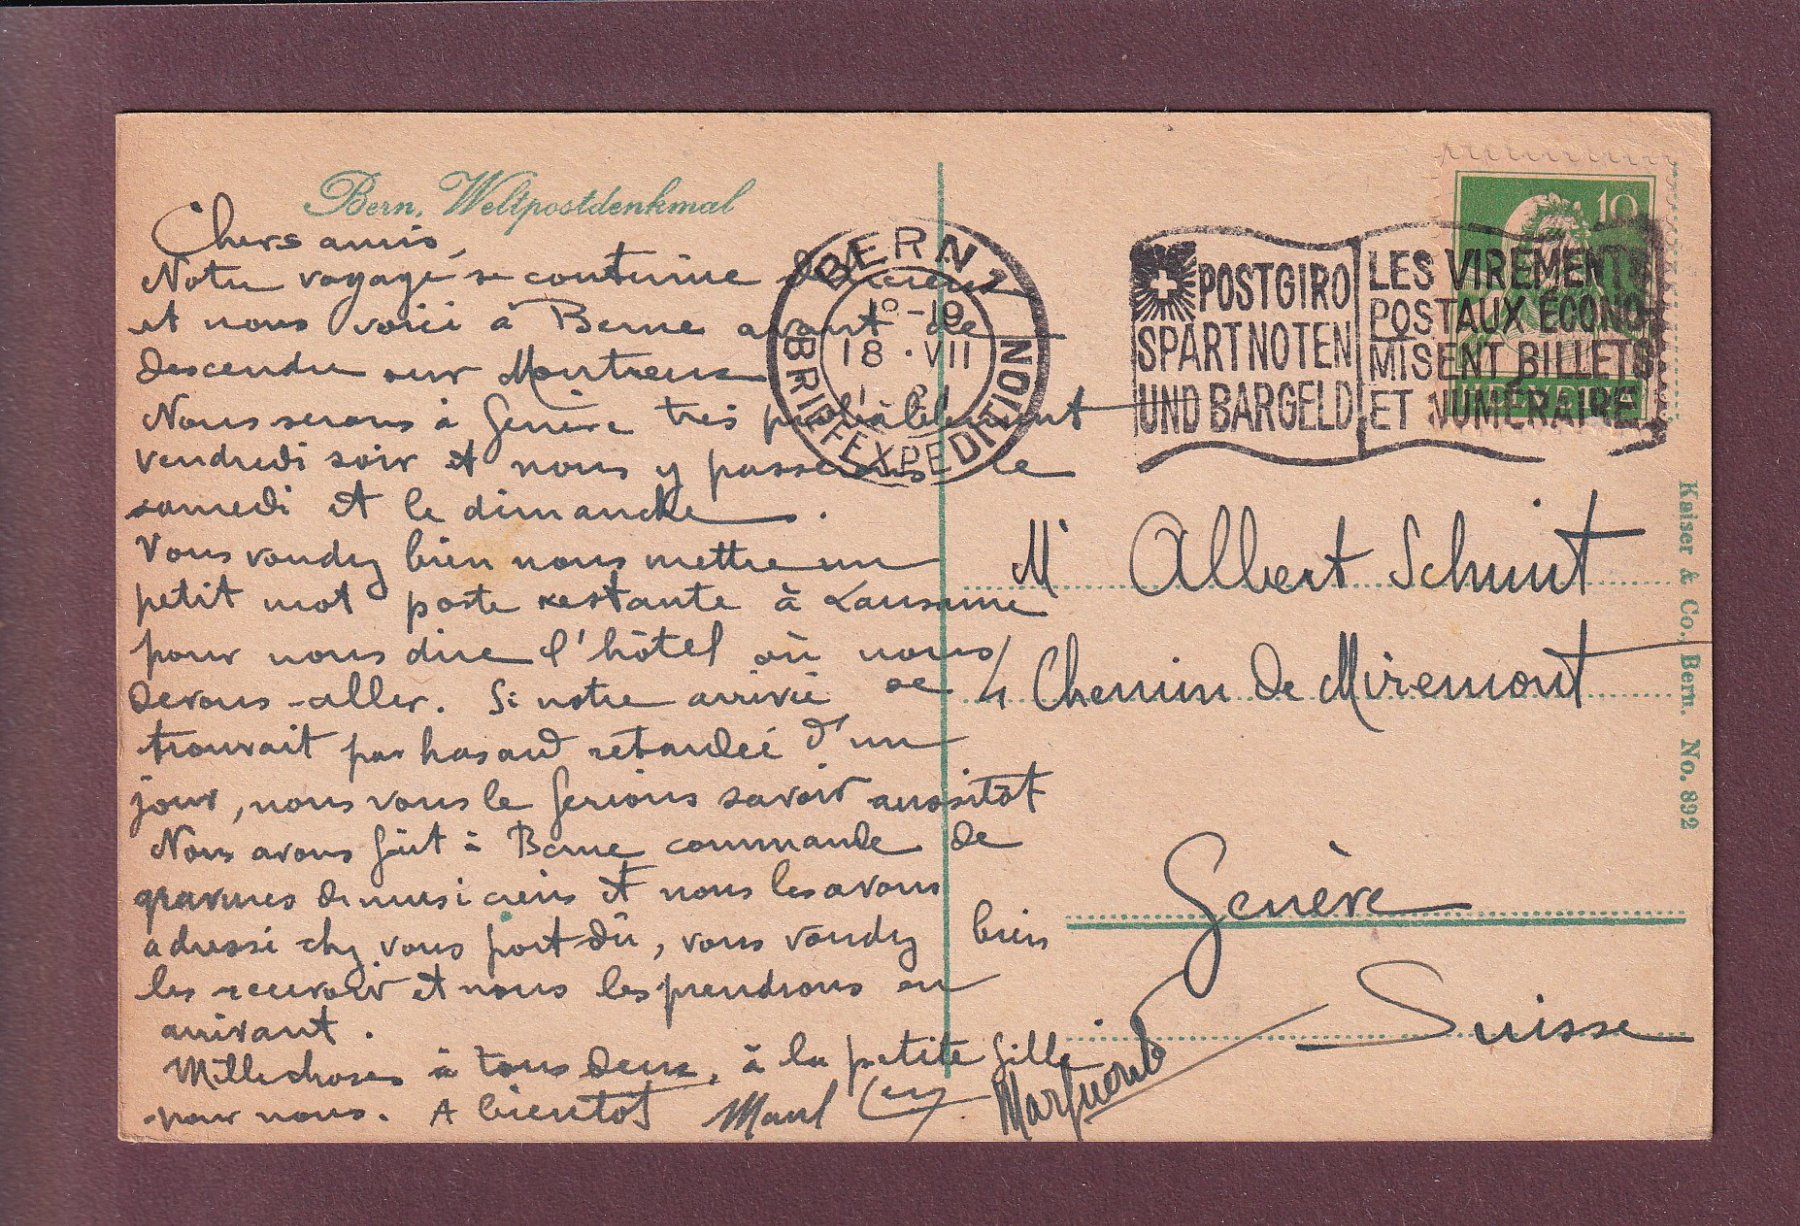 Bern, Weltpostdenkmal
Chers amis,
Notre voyage se continue
et nous voici à Berne avant de
descendre sur Montreux
Nous serons à Genève très probablement
vendredi soir et nous y passerons le
samedi et le dimanche.
Vous voudrez bien nous mettre un
petit mot poste restante à Lausanne
pour nous dire l'hôtel où nous
devons-aller. Si notre arrivée se
trouvait par hasard retardée d'un
jour, nous vous le ferions savoir aussitôt
Nous avons fait à Berne commande de
gravures de musiciens et nous les avons
adressé chez vous port dû, vous voudrez bien
les recevoir et nous les prendrons en
arrivant.
Mille choses à tous deux, à la petite fille
pour nous. A bientôt
BERN 1
18.VII
BRIEFEXPEDITION
POSTGIRO
SPART NOTEN
UND BARGELD
LES VIREMENTS
POSTAUX ECONO-
MISENT BILLETS
ET NUMERAIRE
10
Mr Albert Schmit
4 Chemin de Miremont
Genève
Suisse
Kaiser & Co., Bern. No. 892